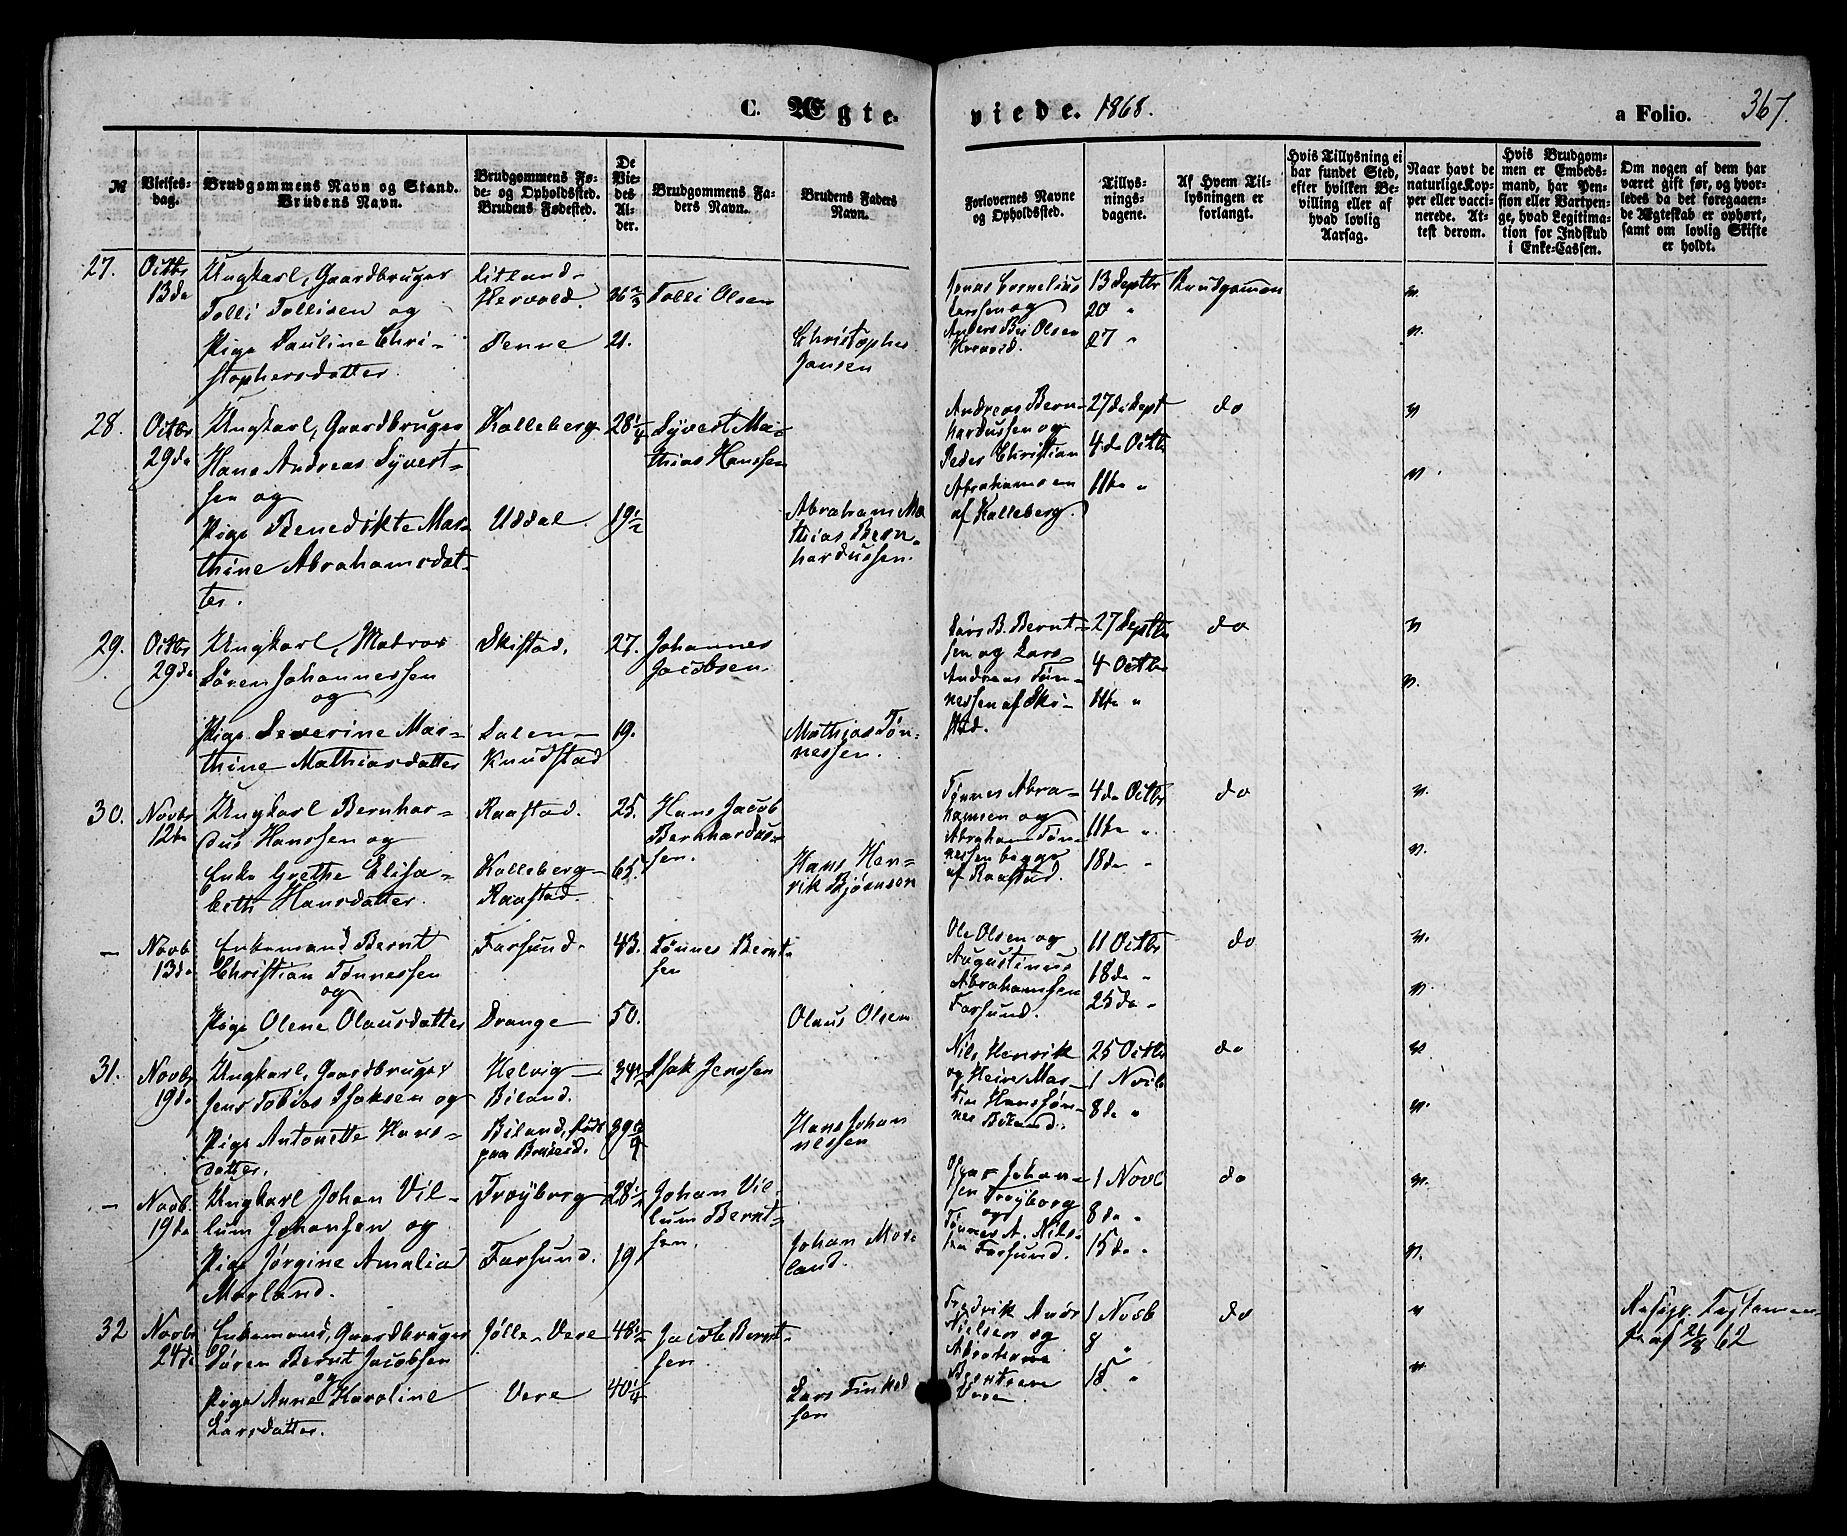 C. Ægteviede. 1868. a Folio. 367.
№
Vielses-
dag.
Brudgommens Navn og Stand.
Brudens Navn.
Brudgommens Fø-
de- og Opholdssted.
Brudens Fødested.
De
Vie-
des
Al-
der.
Brudgommens Fa-
ders Navn.
Brudens Faders
Navn.
Forlovernes Navne
og Opholdssted.
Tillys-
nings-
dagene.
Af Hvem Til-
lysningen er
forlangt.
Hvis Tillysning ei
har fundet Sted,
efter hvilken Be-
villing eller af
hvad lovlig
Aarsag.
Naar havt de
naturlige Kop-
per eller vacci-
nerede. At-
test derom.
Hvis Brudgom-
men er Embeds-
mand, har Pen-
sion eller Vartpen-
ge, hvad Legitima-
tion for Indskud
i Enke-Cassen.
Om nogen af dem har
været gift før, og hvor-
ledes da det foregaaen-
de Ægteskab er ophørt,
samt om lovlig Skifte
er holdt.
27.
Octbr
13de
Ungkarl, Gaardbruger
Tolli Tollisen og
Pige Pauline Chri-
stophersdatter.
Litland-
Hervold.
Penne
36 2/3
21.
Tolli Olsen
Christopher
Jansen
Jonas Cornelius
Larssen og
Anders Olsen
13 Septbr
20 "
27 "
Brudgommen
v.
v.
28.
Octbr
29de
Ungkarl, Gaardbruger
Hans Andreas Syvert-
sen og
Pige Benedikte Mar-
thine Abrahamsdat-
ter.
Kalleberg
Uddal.
28 1/4
19 1/2
Syvert Ma-
thias Hanssen
Abraham Ma
thias Bern-
hardussen
Andreas Bern-
hardussen og
Peder Christian
Abrahamsen
af Kalleberg.
27de Sept
4de Octbr
11te "
do
v
v.
29.
Octbr
29de
Ungkarl, Matros
Søren Johannessen
og
Pige Severine Mar-
thine Mathiasdatter
Skistad.
Salen-
Knudstad
27.
19.
Johannes
Jacobsen.
Mathias Tøn-
nessen.
Lars B. Bernt-
sen og Lars
Andreas Tøn-
nessen af Ski-
stad.
27 Septbr
4 Octbr
11te "
do
v
v.
30.
Novbr
12te
Ungkarl Bernhar-
dus Hanssen og
Enke Grethe Elisa-
beth Hansdatter.
Raastad.
Kalleberg-
Raastad.
25.
65.
Hans Jacob
Bernhardus-
sen.
Hans Hen-
rik Bjørnsen
Tønnes Abra-
hamsen og
Abraham Tøn-
nessen begge
af Raastad.
4de Octbr
11te "
18de "
do
v.
v.
-
Novb
13de
Enkemand Bernt
Christian Tønnessen
og
Pige Olene Olausdatter
Farsund.
Drange
43.
50.
Tønnes Bernt-
sen
Olaus Olsen
Ole Olsen og
Augustinus
Abrahamsen
Farsund.
11 Octbr
18de "
25de "
do
v.
v.
31.
Novbr
19de
Ungkarl, Gaardbruger
Jens Tobias Isaksen og
Pige Antonette Hans-
datter.
Helvig-
Biland.
Biland, født
paa
Isak Jenssen
Hans Johan
nessen
Nils Henrik
og Hein Mar-
tin Hanssøn-
ner Biland.
25 Octbr
1 Novb
8de "
do
v
v.
-
Novb.
19de
Ungkarl Johan Vil-
lum Johansen og
Pige Jørgine Amalia
Marland.
Trøyborg
Farsund.
28 1/2
19
Johan Vil-
lum Bernt-
sen.
Johan Mar-
land.
Johan-
sen Trøyborg
og
Tønnes A. Nils-
sen Farsund.
1 Novb
8de "
15de "
do
v.
v.
32
Novbr
24de
Enkemand, Gaardbruger
Søren Bernt Jacobsen
og
Pige Anne Karoline
Larsdatter.
Jølle-Vere
Vere
48 1/2
40 1/4
Jacob Bernt-
sen.
Lars Tinked
sen
Fredrik
Nielsen og
Abraham
Berntsen
Vere.
1 Novb
8 "
15 "
do
v
v.
Testamen-
62